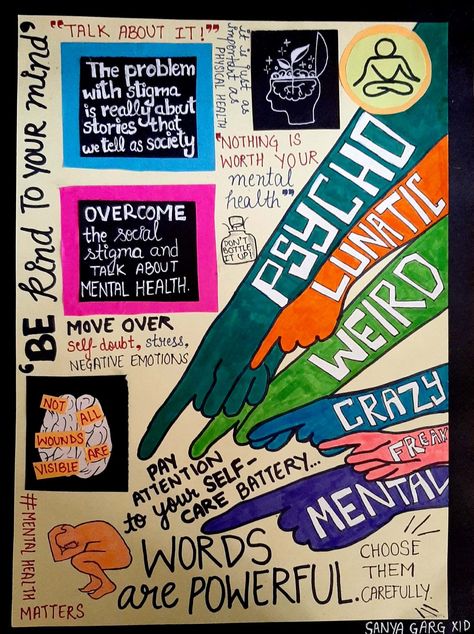 "TALK ABOUT IT!"
'BE kind TO YOUR mind'
The problem
with stigma
is really about
stories that
we tell as society
it is just as
important as
PHYSICAL HEALTH
"NOTHING IS
WORTH YOUR
mental
health"
OVERCOME
the social
stigma and
TALK ABOUT
MENTAL HEALTH.
DON'T
BOTTLE
IT UP!
MOVE OVER
self-doubt, stress,
NEGATIVE EMOTIONS
PSYCHO
LUNATIC
WEIRD
CRAZY
FREAK
MENTAL
NOT ALL
WOUNDS
ARE
VISIBLE
PAY
ATTENTION
to your SELF-
CARE BATTERY...
#MENTAL HEALTH
MATTERS
WORDS
are POWERFUL.
CHOOSE
THEM
CAREFULLY.
SANYA GARG XID